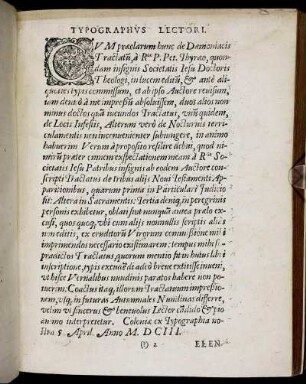 TYPOGRAPHVS LECTORI.
CVM præclarum hunc de Dæmoniacis
Tractatũ, à R.do P. Pet. Thyræo, quon-
dam insignis Societatis Iesu Doctoris
Theologi, in lucem editũ, & antè ali-
quot
typis commissum, et ab ipso Auctore reuisum,
iam denuò à me impressũ absoluissem, duos alios non
minus doctos quã iucundos Tractatus, vnũ quidem,
de Locis Infestis, Alterum verò de Nocturnis terri-
culamentis noui inuenti subiungere, in animo
habuerim. Verum à proposito resilire debui, quod ni-
mirũ præter omnem exspectationem meam à R.dis So-
cietatis Iesu Patribus insignis ab eodem Auctore con-
scripti Tractatus de tribus alijs Noui Testamenti Ap-
paritionibus, quarum prima in Particulari Iudicio
sit: Altera in Sacramentis: Tertia deniq; in peregrinis
personis exhibetur, oblati sint nunquã antea prælo excu-
si, quos quoq;, vbi cum alijs nonnullis scriptis aliàs
non editis, ex eruditorũ Virorum commissione mihi
imprimendos necessario existimarem: tempus mihi su-
prædictos Tractatus, quorum mentio fit in huius libri
inscriptione, typis excudẽdi adeò breue extitisse inueni,
vt hisce Vernalibus nundinis paratos habere non po-
tuerim. Coactus itaq; illorum Tractatuum impressio-
nem, vsq; in futuras Autumnales Nundinas differre,
velim vt sincerus & beneuolus Lector cãdido & pio
animo interpretetur. Coloniæ ex Typographia no-
stra 5. April. Anno M. DCIII.
(†) 2 ELEN-